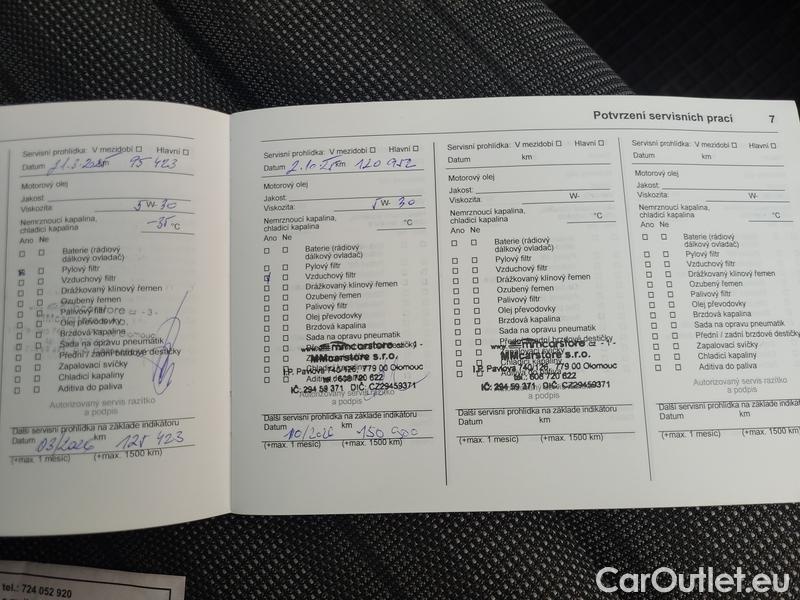 Potvrzení servisních prací 7
Servisní prohlídka: V mezidobí Hlavní
Datum 21.3.2025 km 95 423
Motorový olej
Jakost:
Viskozita: 5 W- 30
Nemrznoucí kapalina,
chladicí kapalina -35 °C
Ano Ne
Baterie (rádiový
dálkový ovladač)
Pylový filtr
Vzduchový filtr
Drážkovaný klínový řemen
Ozubený řemen
Palivový filtr
Olej převodovky
Brzdová kapalina
Sada na opravu pneumatik
Přední / zadní brzdové destičky
Zapalovací svíčky
Chladicí kapaliny
Aditiva do paliva
Autorizovaný servis razítko
a podpis
Další servisní prohlídka na základě indikátoru
Datum 03/2026 km 125 423
(+max. 1 měsíc) (+max. 1500 km)
Servisní prohlídka: V mezidobí Hlavní
Datum 2.10.25 km 120 952
Motorový olej
Jakost:
Viskozita: 5 W- 30
Nemrznoucí kapalina,
chladicí kapalina °C
Ano Ne
Baterie (rádiový
dálkový ovladač)
Pylový filtr
Vzduchový filtr
Drážkovaný klínový řemen
Ozubený řemen
Palivový filtr
Olej převodovky
Brzdová kapalina
Sada na opravu pneumatik
mmcarstore
MMcarstore s.r.o.
I.P. Pavlova 740/126, 779 00 Olomouc
tel. 608 720 622
IČ: 294 59 371 DIČ: CZ29459371
Autorizovaný servis razítko
a podpis
Další servisní prohlídka na základě indikátoru
Datum 10/2026 km
(+max. 1 měsíc) (+max. 1500 km)
Servisní prohlídka: V mezidobí Hlavní
Datum km
Motorový olej
Jakost:
Viskozita: W-
Nemrznoucí kapalina,
chladicí kapalina °C
Ano Ne
Baterie (rádiový
dálkový ovladač)
Pylový filtr
Vzduchový filtr
Drážkovaný klínový řemen
Ozubený řemen
Palivový filtr
Olej převodovky
Brzdová kapalina
Sada na opravu pneumatik
mmcarstore cz - 1 -
MMcarstore s.r.o.
I.P. Pavlova 740/126, 779 00 Olomouc
tel. 608 720 622
IČ: 294 59 371 DIČ: CZ29459371
Autorizovaný servis razítko
a podpis
Další servisní prohlídka na základě indikátoru
Datum km
(+max. 1 měsíc) (+max. 1500 km)
Servisní prohlídka: V mezidobí Hlavní
Datum km
Motorový olej
Jakost:
Viskozita: W-
Nemrznoucí kapalina,
chladicí kapalina °C
Ano Ne
Baterie (rádiový
dálkový ovladač)
Pylový filtr
Vzduchový filtr
Drážkovaný klínový řemen
Ozubený řemen
Palivový filtr
Olej převodovky
Brzdová kapalina
Sada na opravu pneumatik
Přední / zadní brzdové destičky
Zapalovací svíčky
Chladicí kapaliny
Aditiva do paliva
Autorizovaný servis razítko
a podpis
Další servisní prohlídka na základě indikátoru
Datum km
(+max. 1 měsíc) (+max. 1500 km)
tel.: 724 052 920
CarOutlet.eu